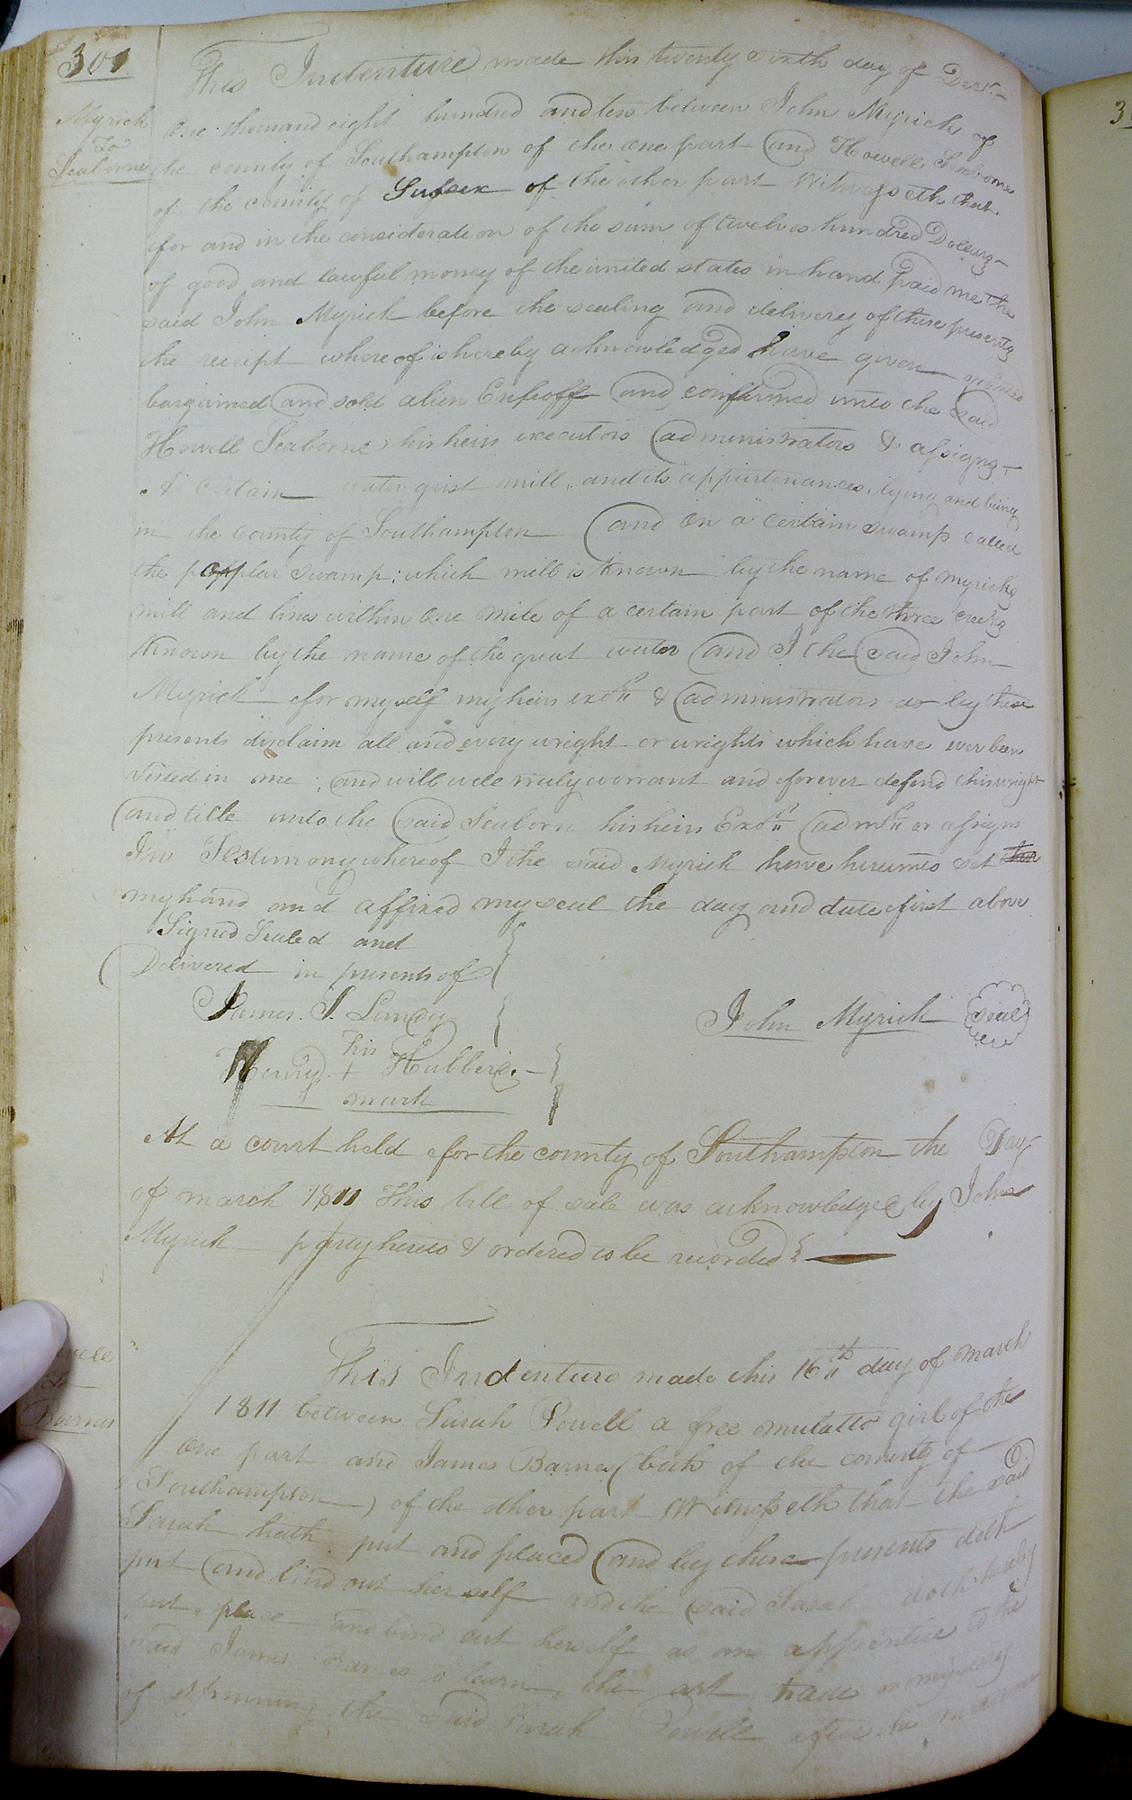 301
Myrick
To
Seaborne
This Indenture made this twenty sixth day of Decr.
One thousand eight hundred and ten between John Myrick of
the county of Southampton of the one part and Howell Seaborne
of the county of Sussex of the other part Witnesseth that
for and in the consideration of the sum of twelve hundred Dollars
of good and lawful money of the united states in hand paid me the
said John Myrick before the sealing and delivery of these presents
the receipt whereof is hereby acknowledged have given granted
bargained and sold alien Enfeoff and confirmed unto the said
Howell Seaborne his heirs executors administrators & assigns
A certain water grist mill, and its appurtenances, lying and being
in the county of Southampton and on a certain swamp called
the popplar swamp; which mill is known by the name of myricks
mill and lines within one mile of a certain part of the three creeks
known by the name of the great water and I the said John
Myrick for myself my heirs exors & administrators do by these
presents disclaim all and every wright or wrights which have ever been
vested in me; and will well truly warrant and forever defend this wright
and title unto the said Seaborn his heirs Exors admrs or assigns
In Testimony whereof I the said Myrick have hereunto set
my hand and affixed my seal the day and date first above
Signed Sealed and
Delivered in presents of
James. J. Lundy
John Myrick seal
his
Henry + Hubberd
mark
At a court held for the county of Southampton the Day
of march 1811 This bill of sale was acknowledged by John
Myrick party hereto & ordered to be recorded
Powell
To
Barnes
This Indenture made this 16th day of March
1811 between Sarah Powell a free mulatto girl of the
one part and James Barnes (both of the county of
Southampton) of the other part Witnesseth that the said
Sarah hath put and placed and by these presents doth
put and bind out her self and the said Sarah doth hereby
put, place and bind out herself as an apprentice to the
said James Barnes to learn, the art trade or mystery
of spinning the said Sarah Powell after the manner